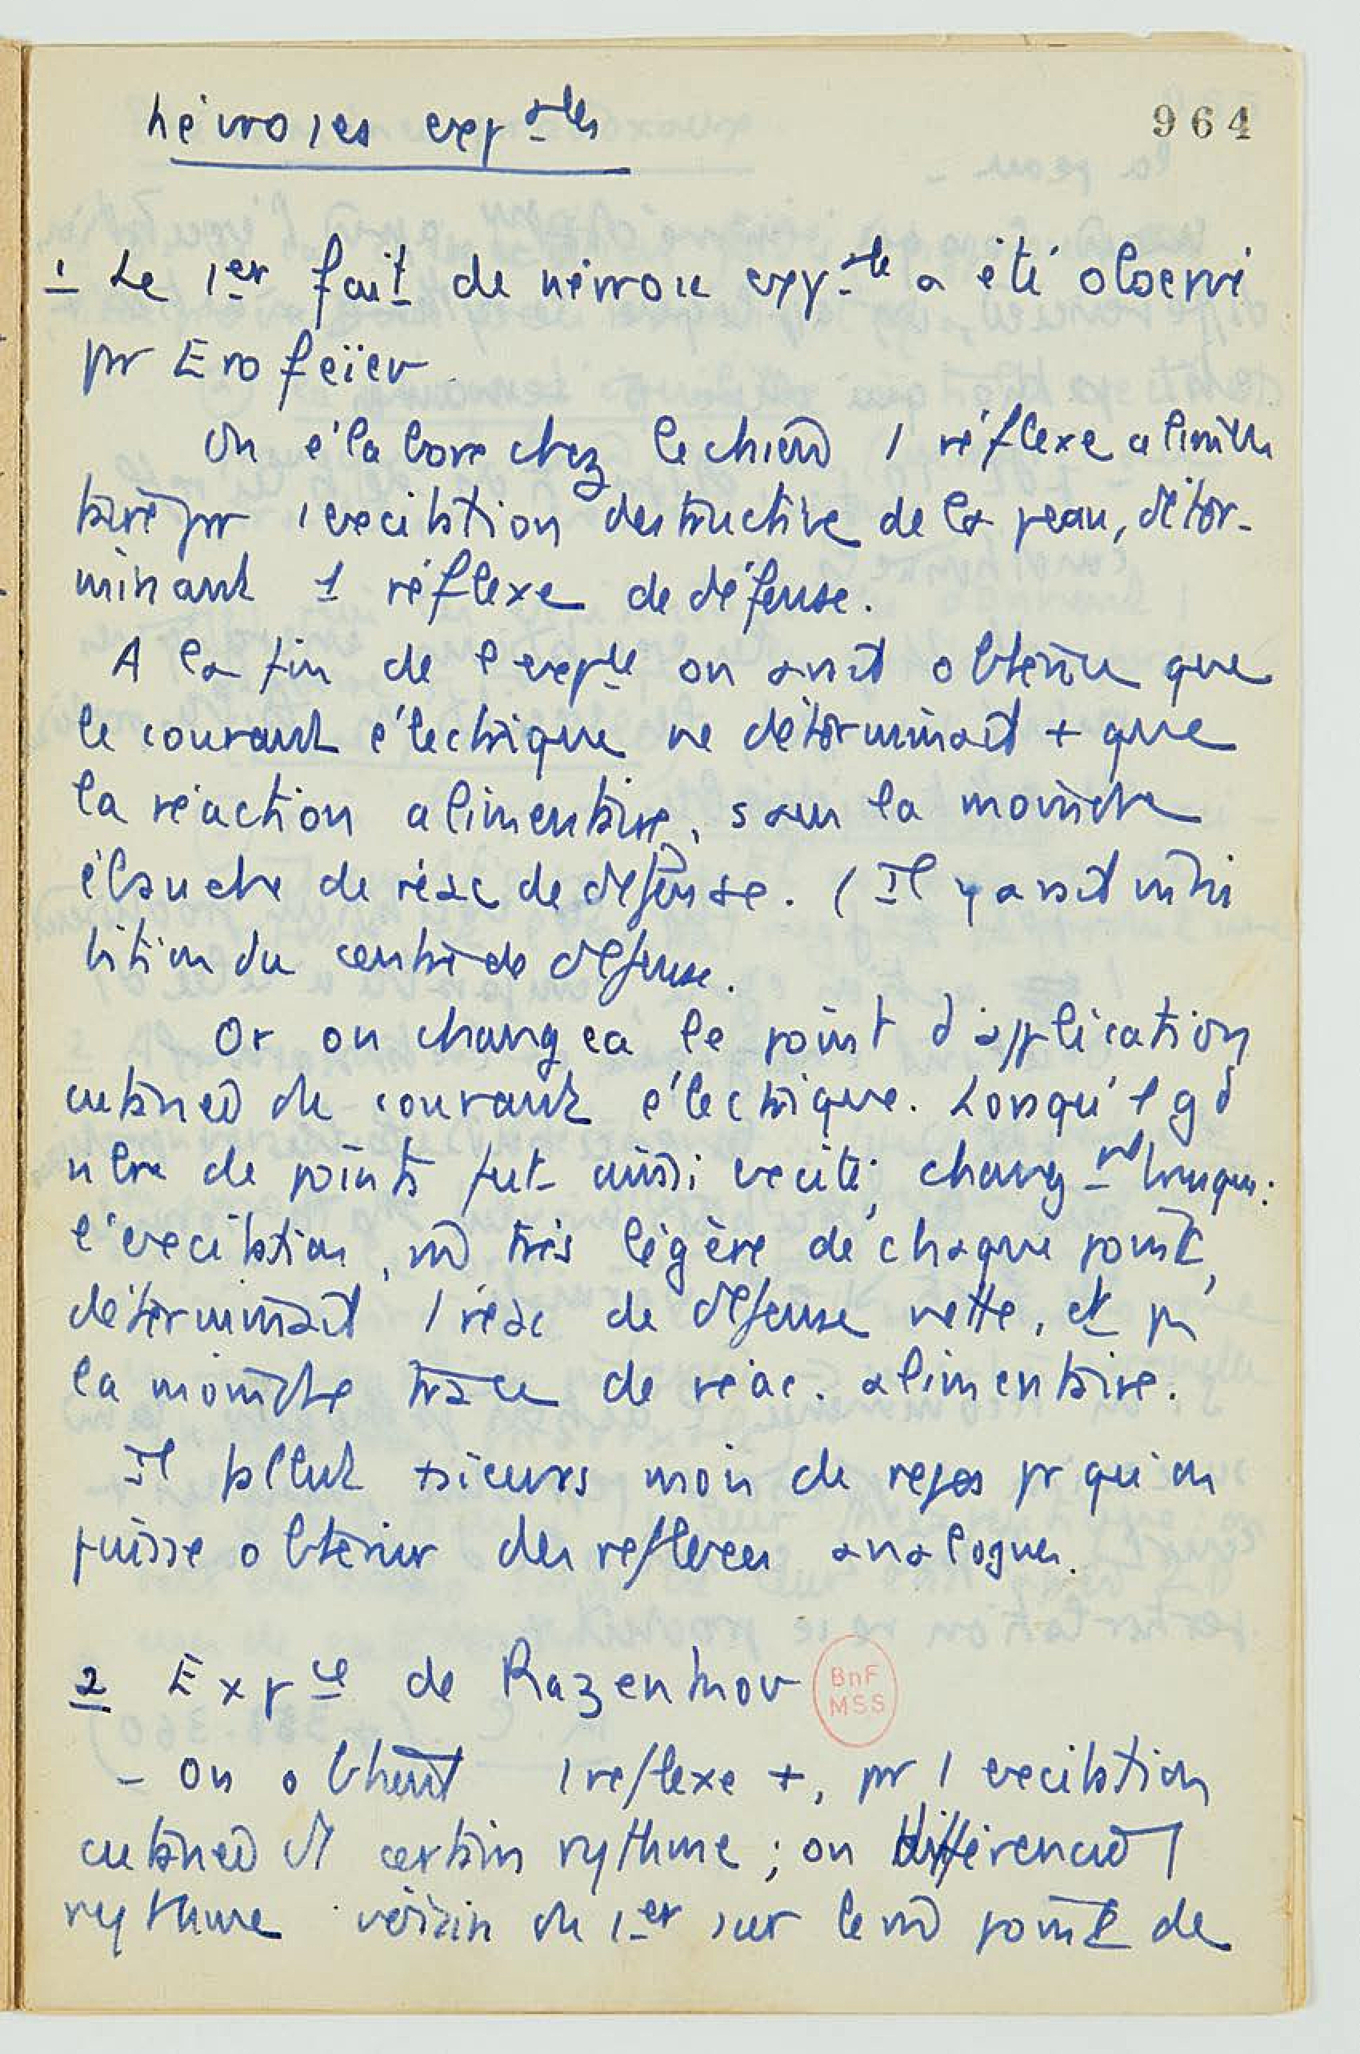 névroses exp_ales
964
1 Le 1er fait de névrose exp_ale a été observé
pr Erofeïev.
On élabore chez le chien 1 réflexe alimen
taire pr 1 excitation destructive de la peau, déter-
minant 1 réflexe de défense.
A la fin de l'expce on avait obtenu que
le courant électrique ne déterminait + que
la réaction alimentaire, sans la moindre
ébauche de réac de défense. (Il y avait inhi
bition du centre de défense.
Or on changea le point d'application
cutané du courant électrique. Lorsqu'1 gd
nbre de points fut ainsi excité, chang_nt brusque :
l'excitation, m̂ très légère de chaque point,
déterminait 1 réac de défense nette, et pas
la moindre trace de réac. alimentaire.
Il fallut +sieurs mois de repos pr qu'on
puisse obtenir des reflexes analogues.
2 Expce de Razenkov
BnF
MSS
- On obtient 1 reflexe +, pr 1 excitation
cutanée d'1 certain rythme ; on différencie 1
rythme voisin du 1er sur le m̂ point de